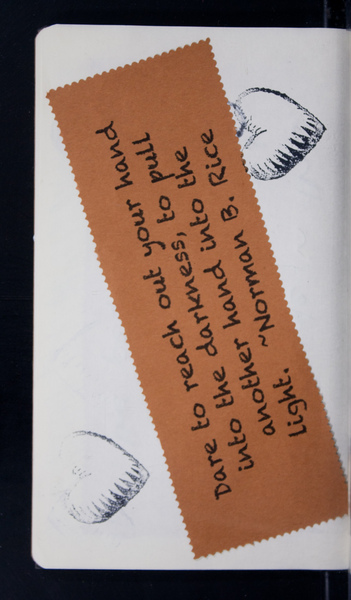 Dare to reach out your hand
into the darkness, to pull
another hand into the
light. ~Norman B. Rice